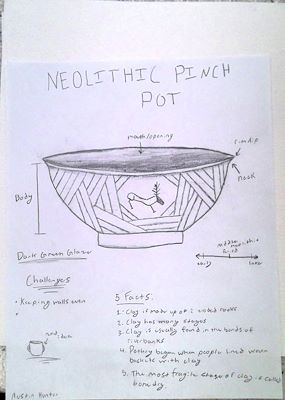 NEOLITHIC PINCH
POT
mouth/opening
rim/lip
neck
Body
Dark Green Glaze
early
later
Challenges
• Keeping walls even
•
5 Facts:
1. Clay is made up of weathered rocks
2. Clay has many stages
3. Clay is usually found in the bends of
riverbanks
4. Pottery began when people lined woven
baskets with clay
5. The most fragile stage of clay is called
bone dry
Austin Hunter